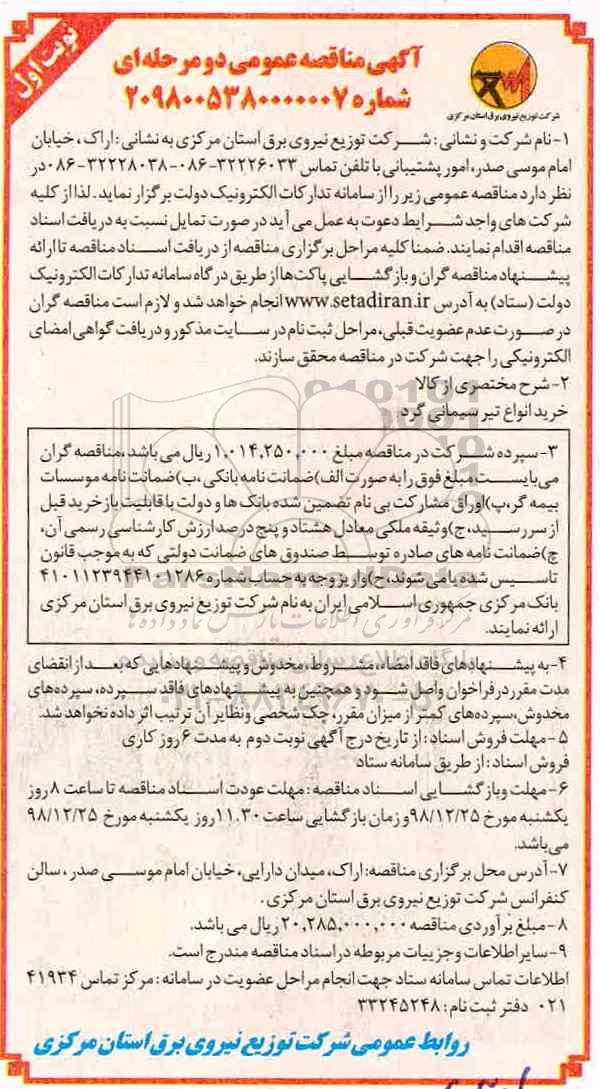 نوبت اول
آگهی مناقصه عمومی دو مرحله‌ای
شماره ۲۰۹۸۰۰۵۳۸۰۰۰۰۰۰۷
شرکت توزیع نیروی برق استان مرکزی
۱- نام شرکت و نشانی : شرکت توزیع نیروی برق استان مرکزی به نشانی : اراک ، خیابان
امام موسی صدر، امور پشتیبانی با تلفن تماس ۳۲۲۲۶۰۳۳-۰۸۶-۳۲۲۲۸۰۳۸-۰۸۶ در
نظر دارد مناقصه عمومی زیر را از سامانه تدارکات الکترونیک دولت برگزار نماید. لذا از کلیه
شرکت های واجد شرایط دعوت به عمل می آید در صورت تمایل نسبت به دریافت اسناد
مناقصه اقدام نمایند. ضمنا کلیه مراحل برگزاری مناقصه از دریافت اسناد مناقصه تا ارائه
پیشنهاد مناقصه گران و بازگشایی پاکت‌ها از طریق درگاه سامانه تدارکات الکترونیک
دولت (ستاد) به آدرس www.setadiran.ir انجام خواهد شد و لازم است مناقصه گران
در صورت عدم عضویت قبلی، مراحل ثبت نام در سایت مذکور و دریافت گواهی امضای
الکترونیکی را جهت شرکت در مناقصه محقق سازند.
۲- شرح مختصری از کالا
خرید انواع تیر سیمانی گرد
۳- سپرده شرکت در مناقصه مبلغ ۱,۰۱۴,۲۵۰,۰۰۰ ریال می باشد، مناقصه گران
می‌بایست، مبلغ فوق را به صورت الف)ضمانت نامه بانکی ، ب)ضمانت نامه موسسات
بیمه گر، پ)اوراق مشارکت بی نام تضمین شده بانک ها و دولت با قابلیت بازخرید قبل
از سررسید، ج)وثیقه ملکی معادل هشتاد و پنج درصد ارزش کارشناسی رسمی آن،
چ)ضمانت نامه های صادره توسط صندوق های ضمانت دولتی که به موجب قانون
تاسیس شده یا می شوند، ح)واریز وجه به حساب شماره ۴۱۰۱۱۲۳۹۴۴۱۰۱۲۸۶
بانک مرکزی جمهوری اسلامی ایران به نام شرکت توزیع نیروی برق استان مرکزی
ارائه نمایند.
۴- به پیشنهادهای فاقد امضاء، مشروط، مخدوش و پیشنهادهایی که بعد از انقضای
مدت مقرر در فراخوان واصل شود و همچنین به پیشنهادهای فاقد سپرده، سپرده‌های
مخدوش، سپرده‌های کمتر از میزان مقرر، چک شخصی و نظایر آن ترتیب اثر داده نخواهد شد.
۵- مهلت فروش اسناد : از تاریخ درج آگهی نوبت دوم به مدت ۶ روز کاری
فروش اسناد : از طریق سامانه ستاد
۶- مهلت و بازگشایی اسناد مناقصه : مهلت عودت اسناد مناقصه تا ساعت ۸ روز
یکشنبه مورخ ۹۸/۱۲/۲۵ و زمان بازگشایی ساعت ۱۱.۳۰ روز یکشنبه مورخ ۹۸/۱۲/۲۵
می‌باشد.
۷- آدرس محل برگزاری مناقصه: اراک، میدان دارایی، خیابان امام موسی صدر ، سالن
کنفرانس شرکت توزیع نیروی برق استان مرکزی .
۸- مبلغ برآوردی مناقصه ۲۰,۲۸۵,۰۰۰,۰۰۰ ریال می باشد.
۹- سایر اطلاعات و جزییات مربوطه در اسناد مناقصه مندرج است.
اطلاعات تماس سامانه ستاد جهت انجام مراحل عضویت در سامانه : مرکز تماس ۴۱۹۳۴
۰۲۱ دفتر ثبت نام : ۳۳۲۴۵۲۴۸
روابط عمومی شرکت توزیع نیروی برق استان مرکزی